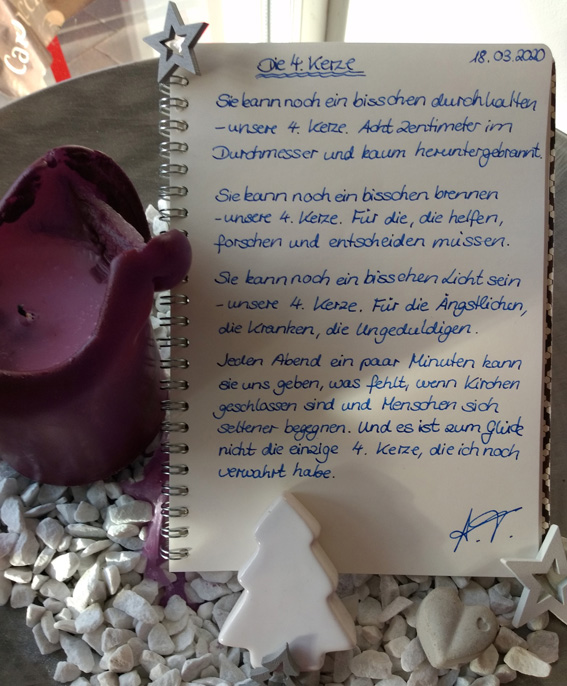 18.03.2020
Die 4. Kerze
Sie kann noch ein bisschen durchhalten
- unsere 4. Kerze. Acht Zentimeter im
Durchmesser und kaum heruntergebrannt.
Sie kann noch ein bisschen brennen
- unsere 4. Kerze. Für die, die helfen,
forschen und entscheiden müssen.
Sie kann noch ein bisschen Licht sein
- unsere 4. Kerze. Für die Ängstlichen,
die Kranken, die Ungeduldigen.
Jeden Abend ein paar Minuten kann
sie uns geben, was fehlt, wenn Kirchen
geschlossen sind und Menschen sich
seltener begegnen. Und es ist zum Glück
nicht die einzige 4. Kerze, die ich noch
verwahrt habe.
A.T.